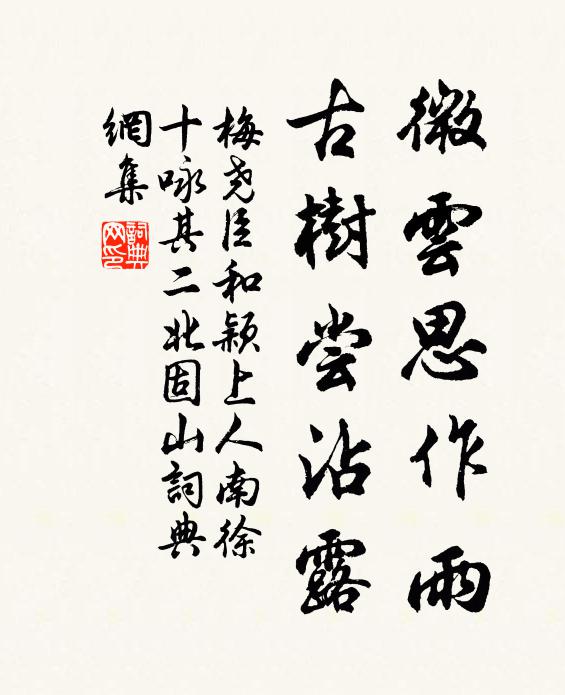 微雲思作雨
古樹尝沾露
梅尧臣和颖上人南徐
十咏其二北固山詞典
網集
詞典
网印